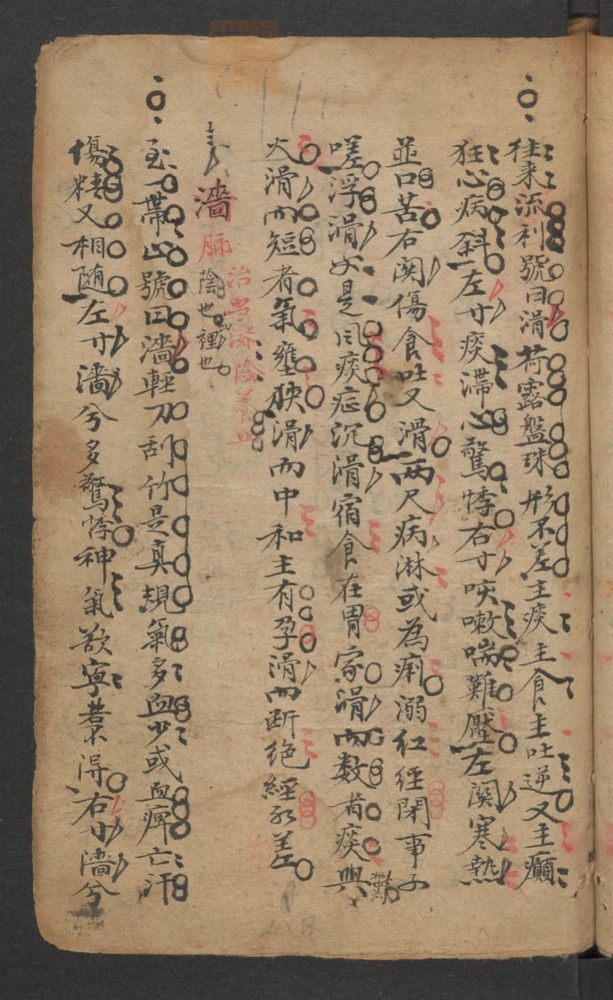 往来流利號曰滑荷露盤珠形不差主痰主食主吐逆又主癲
狂心病斜左寸痰滞心驚悸右寸咳嗽喘難壓左関寒熱
並口苦右関傷食吐又滑兩尺病淋或為痢溺红經閉事子
嗟浮滑必是風痰症沉滑宿食在胃家滑而数者痰與
火滑而短者氣壅腴滑而中和主有孕滑而断绝經必差
濇脉 陰也裡也
治當濟陰養血
至一帶止號曰濇輕刀刮竹是真規氣多血少或血痺亡汗
傷精又相随左寸濇兮多驚悸神氣欲寧若不得右寸濇兮